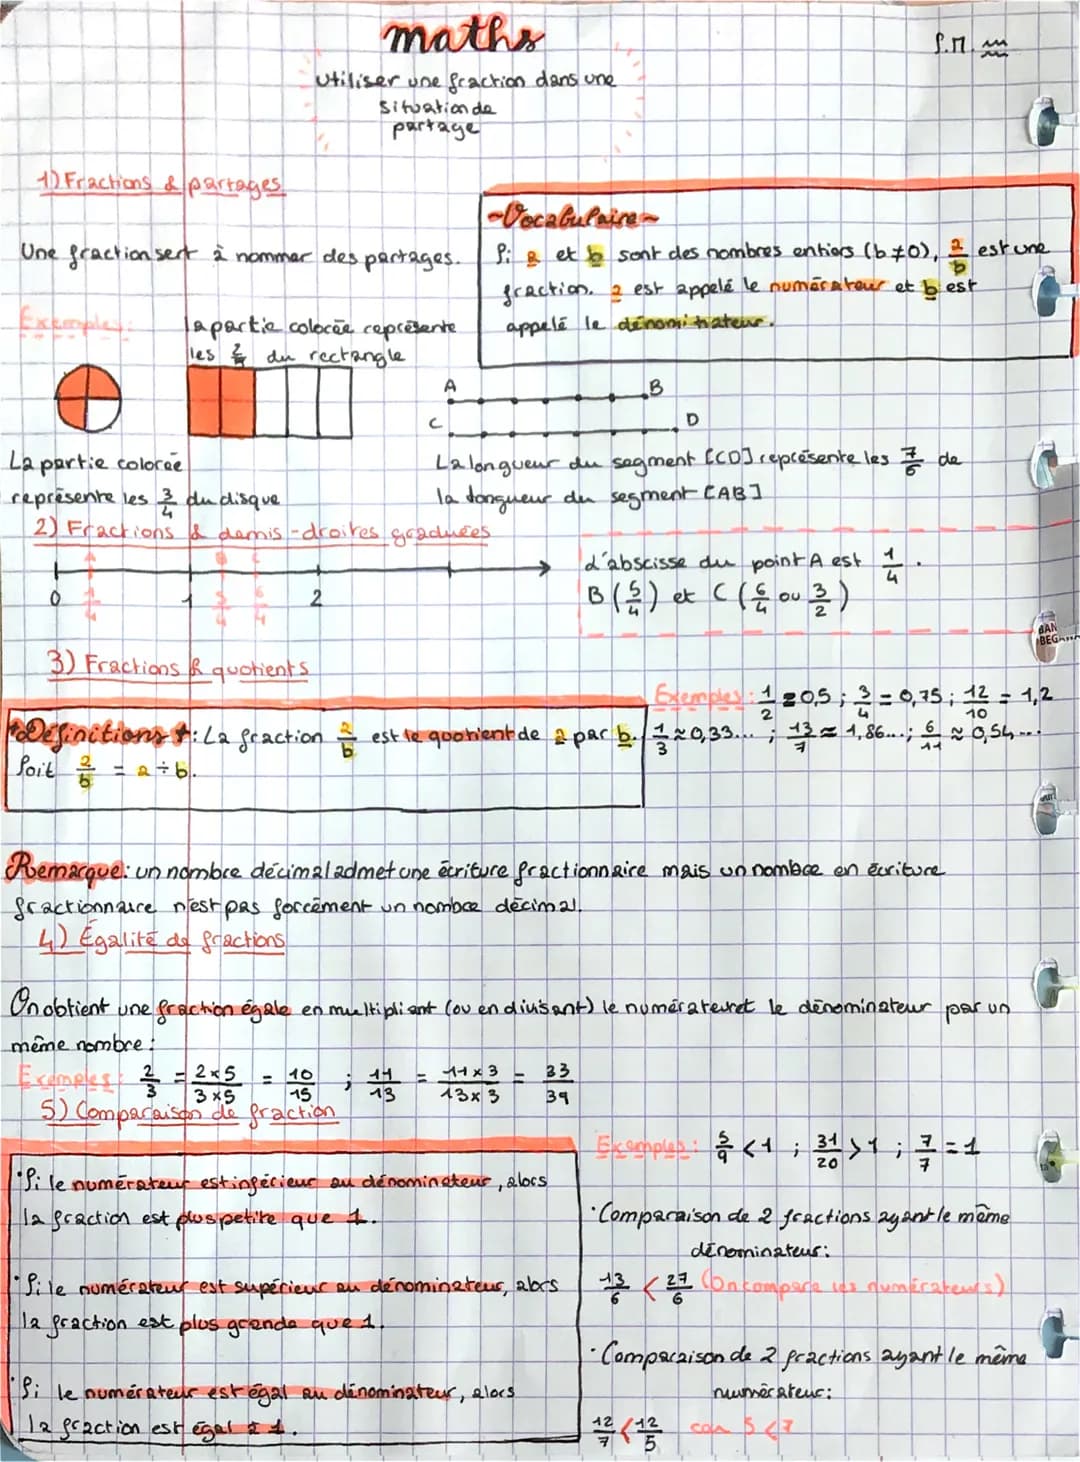 maths
S.M.
Utiliser une fraction dans une
situation de
partage
1) Fractions & partages
Une fraction sert à nommer des partages.
~Vocabulaire~
Si a et b sont des nombres entiers (b ≠ 0), a/b est une
fraction. a est appelé le numérateur et b est
appelé le dénominateur.
Exemples:
la partie colorée représente
les 2/5 du rectangle
A B
C D
La partie colorée
représente les 3/4 du disque
La longueur du segment [CD] représente les 7/6 de
la longueur du segment [AB]
2) Fractions & demis-droites graduées
A B C
0 1/4 1 5/4 6/4 2
L'abscisse du point A est 1/4.
B (5/4) et C (6/4 ou 3/2)
BAN
BEG
3) Fractions & quotients
Exemples: 1/2 = 0,5 ; 3/4 = 0,75 ; 12/10 = 1,2
1/3 ≈ 0,33... ; 13/7 ≈ 1,86...; 6/11 ≈ 0,54...
Définitions: La fraction a/b est le quotient de a par b.
Soit a/b = a ÷ b.
Remarque: un nombre décimal admet une écriture fractionnaire mais un nombre en écriture
fractionnaire n'est pas forcément un nombre décimal.
4) Égalité de fractions
On obtient une fraction égale en multipliant (ou en divisant) le numérateur et le dénominateur par un
même nombre:
Exemples: 2/3 = 2×5/3×5 = 10/15 ; 11/13 = 11×3/13×3 = 33/39
5) Comparaison de fraction
•Si le numérateur est inférieur au dénominateur, alors
la fraction est plus petite que 1.
•Si le numérateur est supérieur au dénominateur, alors
la fraction est plus grande que 1.
•Si le numérateur est égal au dénominateur, alors
la fraction est égal à 1.
Exemples: 5/9 < 1 ; 31/20 > 1 ; 7/7 = 1
•Comparaison de 2 fractions ayant le même
dénominateur:
13/6 < 27/6 (On compare les numérateurs)
•Comparaison de 2 fractions ayant le même
numérateur:
12/7 < 12/5 car 5 < 7